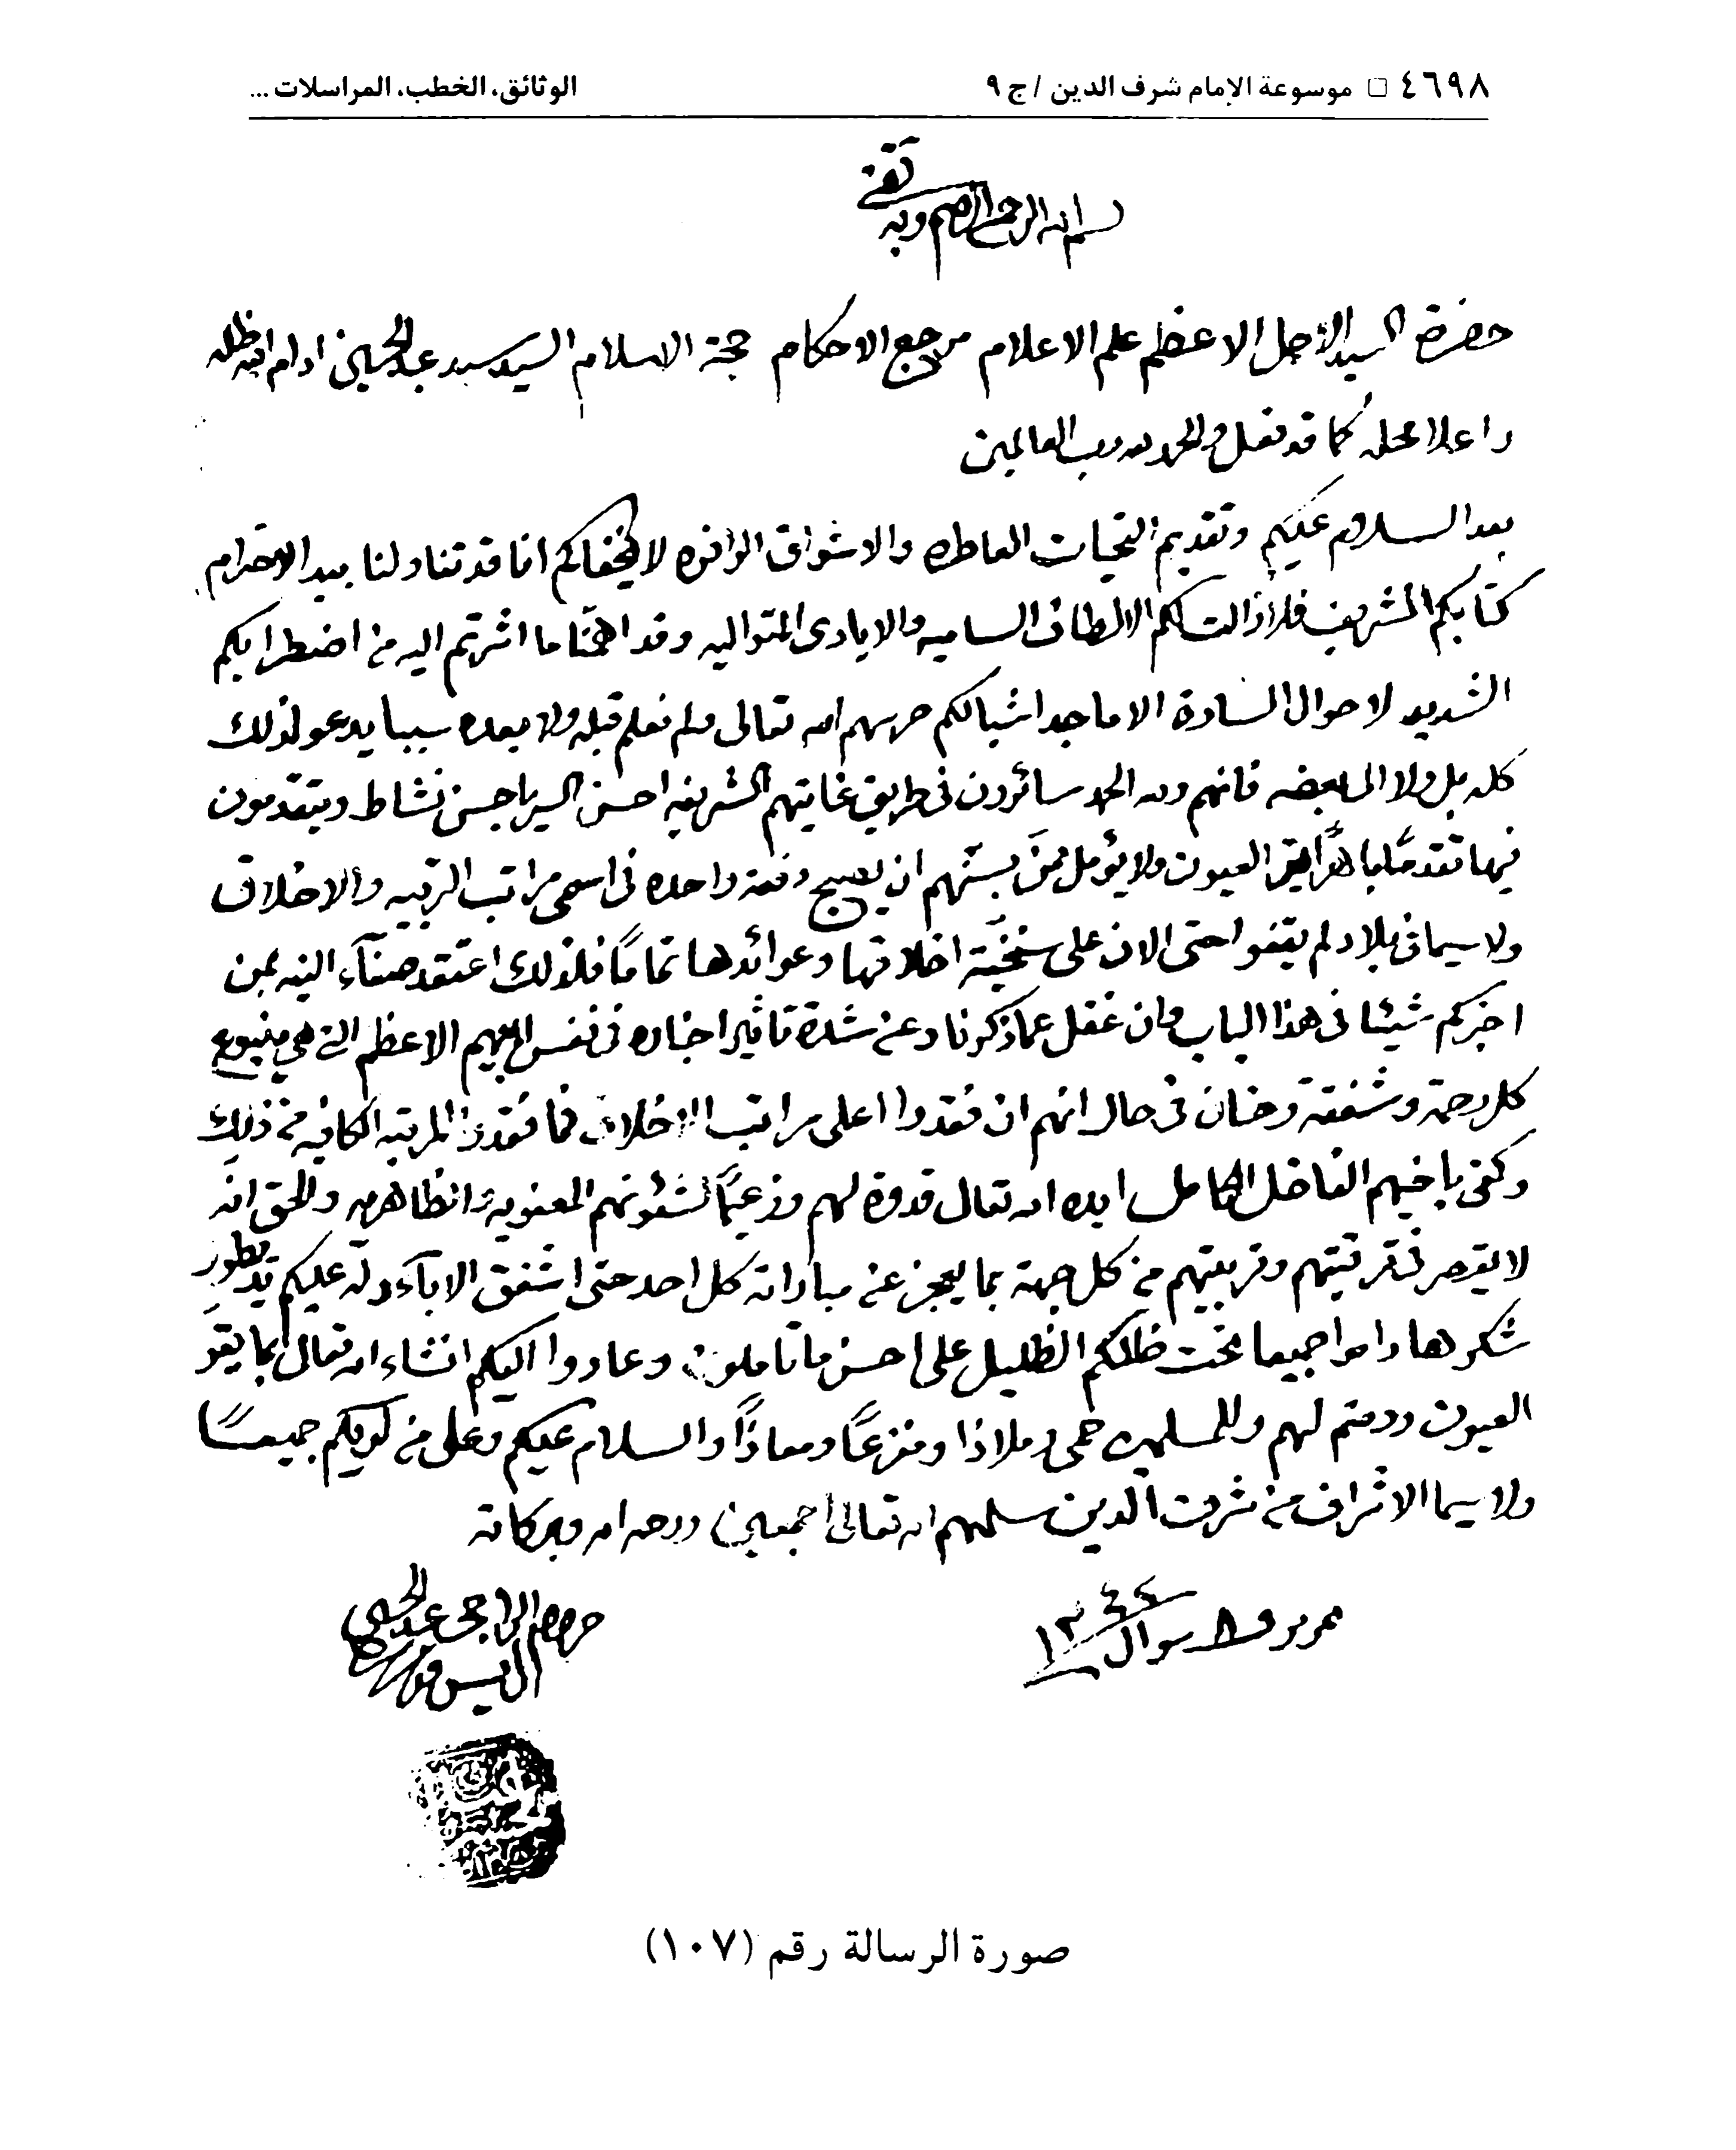 ٤٦٩٨ □ موسوعة الإمام شرف الدين / ج ٩
الوثائق، الخطب، المراسلات ...
بسم الله الرحمن الرحيم وبه ثقتي
حضرة السيد الأجل الاعظم علم الاعلام مرجع الاحكام حجة الاسلام السيد سيد عبد الحسين ادام الله ظله
واعلا محله كما قد فعل والحمد لله رب العالمين
بعد السلام عليكم وتقديم التحيات العاطره والاشواق الوافره لا يخفاكم انا قد تناولنا بيد الاحترام
كتابكم الشريف فلا زالت لكم الالطاف الساميه والايادى المتواليه وقد اهمّنا ما اشرتم اليه من اضطرابكم
الشديد لاحوال السادة الاماجد اشبالكم حرسهم الله تعالى ولم نعلم قبله ولا بعده سببا يدعو لذلك
كله بل ولا الى بعضه فانهم ولله الحمد سائرون فى طريق غايتهم الشريفه احسن السير باحسن نشاط ويتقدمون
فيها تقدمًا باهرًا يقر العيون ولا يؤمل ممن بسنّهم ان يصبح دفعة واحده فى اسمى مراتب الرقيه والاخلاق
ولا سيما فى بلاد لم يقفوا حتى الان على اخلاقها وعوائدها تمامًا فلذلك اعتقد حسنآء النيه بمن
اخبركم شيئا فى هذا الباب وان غفل عما ذكرنا وعن شدة تاثير اخباره فى نفس ابيهم الاعظم التى هى ينبوع
كل رحمة وشفقة وحنان فى حال انهم ان فقدوا اعلى مراتب الاخلاق فما فقدوا المرتبه الكافيه من ذلك
وكفى باخيهم الفاضل الكامل ايده الله تعالى قدوة لهم وزعيمًا لشئونهم المعنويه والظاهريه والحق انه
لا يقصر فى ترقيتهم وتربيتهم من كل جهة بما يعجز عن مباراته كل احد حتى اشفق الابآء وله عليكم يد
شكرها داموا جميعا تحت ظلكم الظليل على احسن ما تاملون وعادوا اليكم انشاء الله تعالى بما يقرّ
العيون ودمتم لهم وللمسلمين حمى وملاذا ومفزعًا ومعاذًا والسلام عليكم وعلى من لديكم جميعًا
ولا سيما الاشراف من شرف الدين سلمهم الله تعالى اجمعين ورحمة الله وبركاته
شوال ١٣٤٤
الراجى عبد الحسين
آل يس
صورة الرسالة رقم (١٠٧)